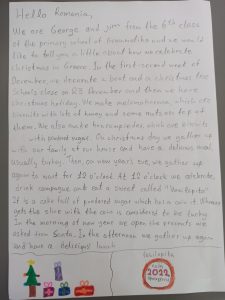 Hello Romania,
We are George and jim from the 6th class
of the primary school of and we would
like to tell you a little about how we celebrate
christmas in Greece. In the first second week of
December, we decorate a boat and a christmas tree.
Schools close on 23 December and then we have
christmas holiday. We make melomakarona, which are
biscuits with lots of honey and some nuts on top of
them. We also make kourampiedes, which are biscuits
with powdered sugar. On christmas day we gather up
with our family at our house and have a delicious meal.
Usually turkey. Then, on new year's eve, we gather up
again to wait for 12 o'clock. At 12 o'clock we celebrate,
drink champagne and eat a sweet called "Vasilopita"
It is a cake full of powdered sugar which has a coin it. Whoever
gets the slice with the coin is considered to be lucky.
In the morning of new year we open the presents we
asked from Santa. In the afternoon we gather up again
and have a delicious lunch
Vasilopita
2022